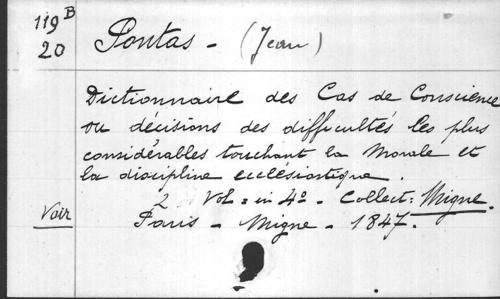 119 B
20
Pontas - (Jean)
Dictionnaire des Cas de Conscience
ou décisions des difficultés les plus
considérables touchant la Morale et
la discipline ecclésiastique.
2 Vol. in 4º - Collect: Migne.
Voir
Paris - Migne - 1847.